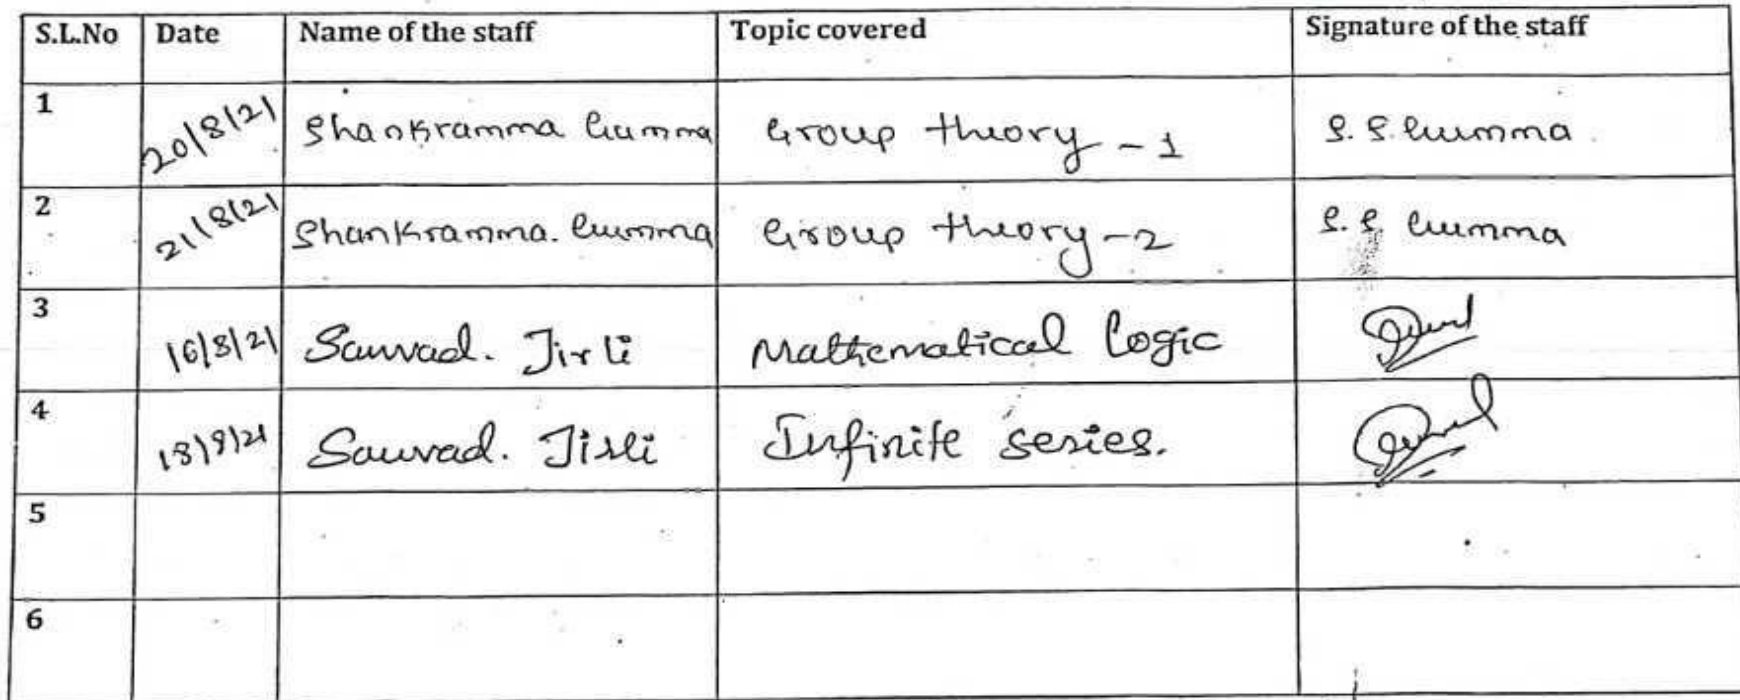 S.L.No Date Name of the staff Topic covered Signature of the staff
1 20/8/21 Shankramma Gumma Group theory - 1 S. S. Gumma
2 21/8/21 Shankramma. Gumma Group theory - 2 S. S. Gumma
3 16/8/21 Sauvad. Jirli Mathematical Logic
4 18/8/21 Sauvad. Jirli Infinite series.
5
6